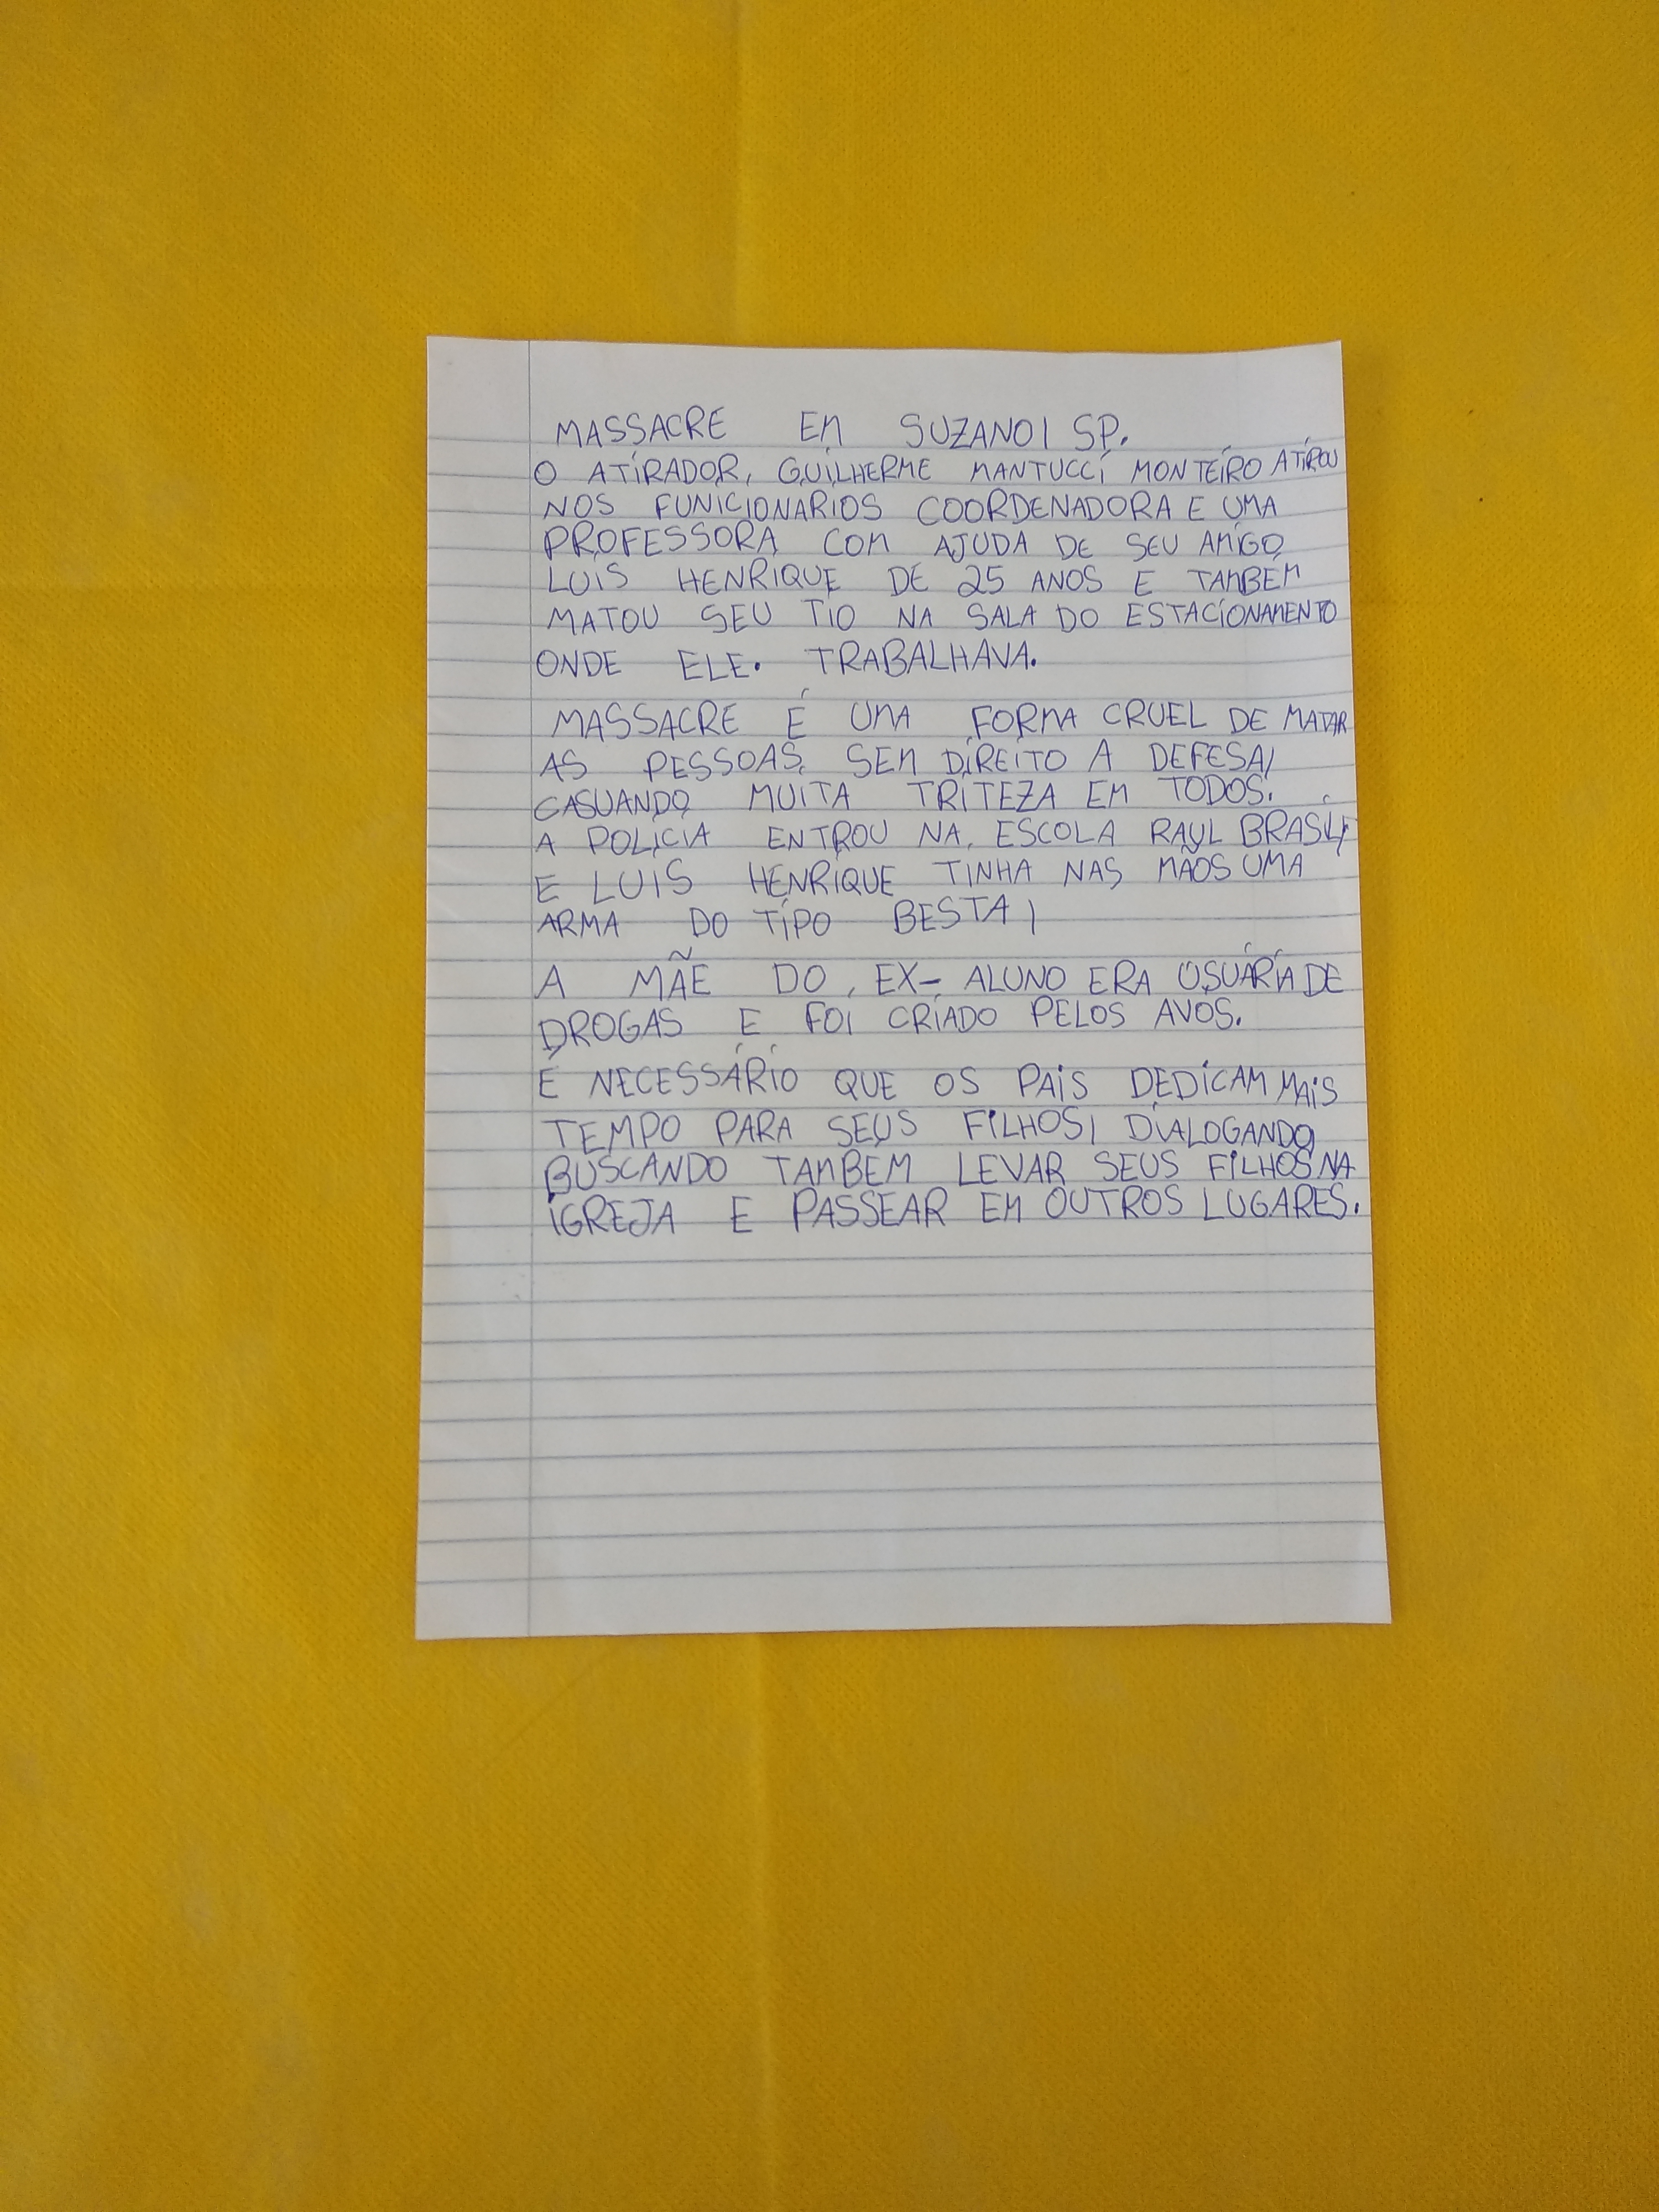 MASSACRE EM SUZANO, SP.
O ATIRADOR, GUILHERME MANTUCCI MONTEIRO ATIROU
NOS FUNICIONARIOS COORDENADORA E UMA
PROFESSORA COM AJUDA DE SEU AMIGO
LUIS HENRIQUE DE 25 ANOS E TAMBÉM
MATOU SEU TIO NA SALA DO ESTACIONAMENTO
ONDE ELE. TRABALHAVA.
MASSACRE É UMA FORMA CRUEL DE MATAR
AS PESSOAS, SEM DIREITO A DEFESA,
CASUANDO MUITA TRITEZA EM TODOS.
A POLICIA ENTROU NA, ESCOLA RAUL BRASIL,
E LUIS HENRIQUE TINHA NAS MÃOS UMA
ARMA DO TIPO BESTA,
A MÃE DO, EX- ALUNO ERA USUÁRIA DE
DROGAS E FOI CRIADO PELOS AVOS.
É NECESSÁRIO QUE OS PAIS DEDICAM MAIS
TEMPO PARA SEUS FILHOS, DIALOGANDO,
BUSCANDO TAMBEM LEVAR SEUS FILHOS NA
IGREJA E PASSEAR EM OUTROS LUGARES.